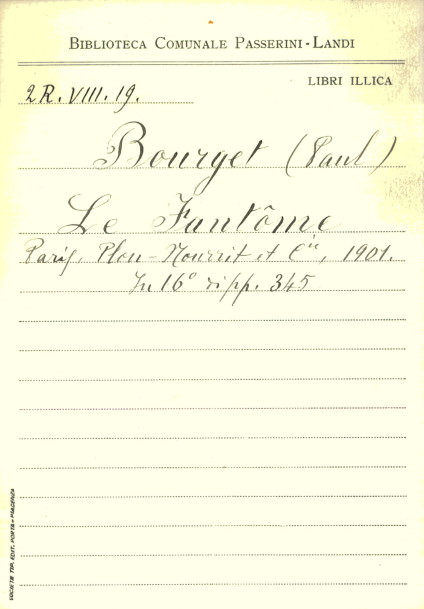 BIBLIOTECA COMUNALE PASSERINI-LANDI
LIBRI ILLICA
2R. VIII. 19.
Bourget (Paul)
Le Fantôme
Paris, Plon-Nourrit et C.ie, 1901.
In 16° di pp. 345
SOCIETÀ TIP. EDIT. PORTA - PIACENZA